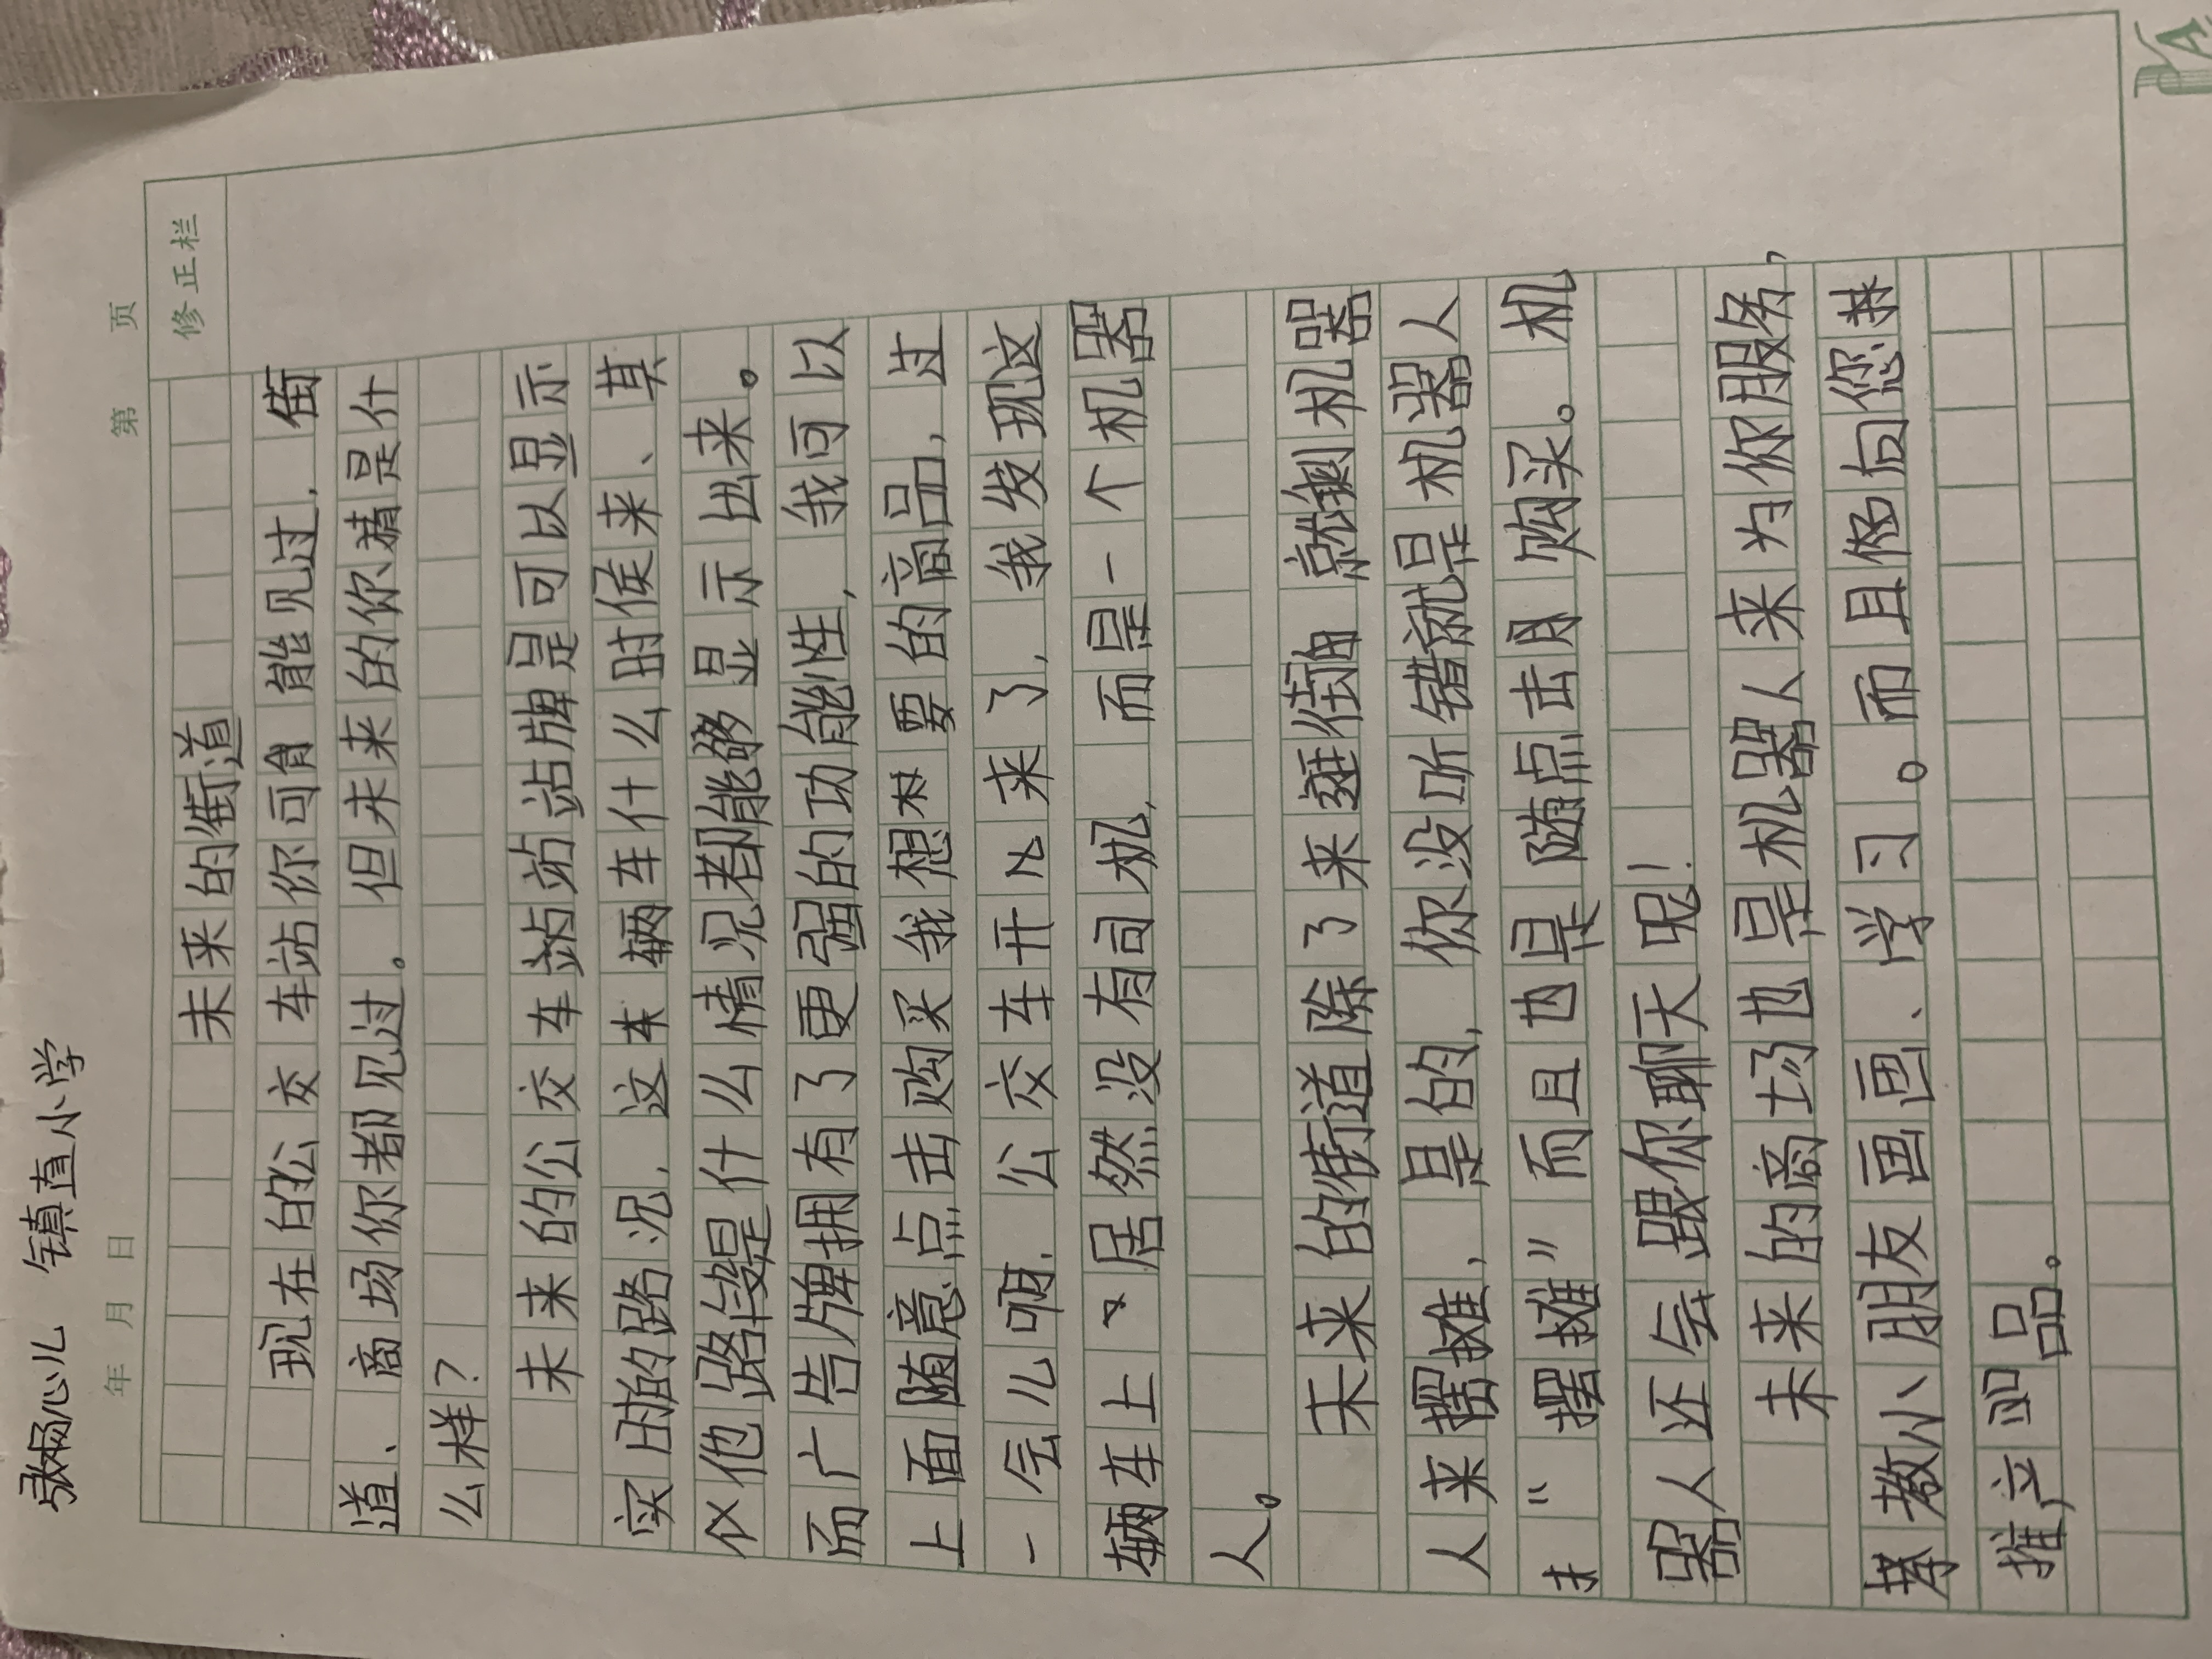 张杨心儿 镇直小学
年 月 日 第 页
修正栏
未来的街道
现在的公交车站你可 能见过，街
道、商场你都见过。但未来的你猜是什
么样？
未来的公交车站站牌是可以显示
实时的路况，这 辆车什么时侯来、其
他路段是什么情况都能够显示出来。
而广告牌拥有了更强的功能性，我可以
上面随意点击购买我想 要的商品，过
一会儿 ，公交车开 来了，我发现这
辆车上 居然没有司机，而是一个机器
人。
未来的街道除了来 就 机器
人来摆摊，是的，你没听错就是机器人
“摆摊”而且也是随点击 购买。机
器人还会跟你聊天呢！
未来的商场也是机器人来为你服务，
教小朋友画画、学习。而且 向您
推产 品。